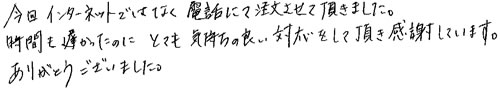 今回インターネットではなく電話にて注文させて頂きました。
時間も遅かったのにとても気持ちの良い対応をして頂き感謝しています。
ありがとうございました。